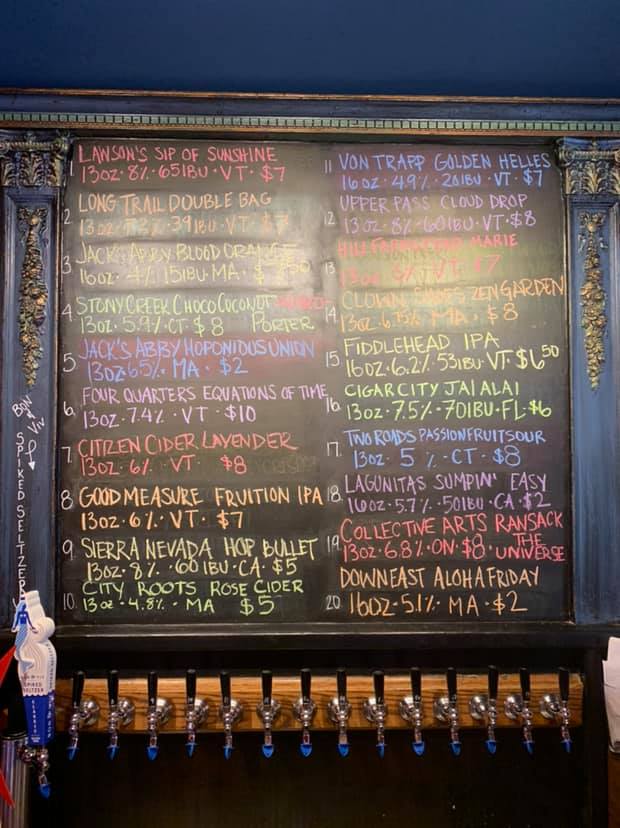 1 LAWSON'S SIP OF SUNSHINE
13OZ · 8% · 65IBU · VT · $7
2 LONG TRAIL DOUBLE BAG
13OZ · 7.2% · 39IBU · VT · $7
3 JACK'S ABBY BLOOD ORANGE
16OZ · 4% 15IBU · MA · $ 50
4 STONY CREEK CHOCO COCONUT
13OZ · 5.9% · CT $8 PORTER
5 JACK'S ABBY HOPONIOUS UNION
13OZ 6.5% · MA · $2
6 FOUR QUARTERS EQUATIONS OF TIME
13OZ · 7.4% · VT · $10
7. CITIZEN CIDER LAVENDER
13OZ · 6% · VT · $8
8 GOOD MEASURE FRUITION IPA
13OZ · 6% · VT · $7
9. SIERRA NEVADA HOP BULLET
13OZ · 8% · 60IBU · CA · $5
10. CITY ROOTS ROSE CIDER
13OZ · 4.8% · MA $5
11 VON TRAPP GOLDEN HELLES
16OZ · 4.9% · 20IBU · VT · $7
12 UPPER PASS CLOUD DROP
13OZ · 8% · 60IBU · VT · $8
13 HILL FARMSTEAD MARIE
13OZ 5% · VT · $7
14 CLOWN SHOES ZEN GARDEN
13OZ · 6.75% · MA · $8
15 FIDDLEHEAD IPA
16OZ · 6.2% · 53IBU · VT · $6 50
16. CIGAR CITY JAI ALAI
13OZ · 7.5% · 70IBU · FL · $6
17. TWO ROADS PASSIONFRUIT SOUR
13OZ · 5% · CT · $8
18. LAGUNITAS SUMPIN' EASY
16OZ · 5.7% · 50IBU · CA · $2
19. COLLECTIVE ARTS RANSACK
13OZ · 6.8% · ON · $8 · THE UNIVERSE
20 DOWNEAST ALOHA FRIDAY
16OZ · 5.1% · MA · $2
BON & VIV
SPIKED SELTZER
SPIKED
SELTZER